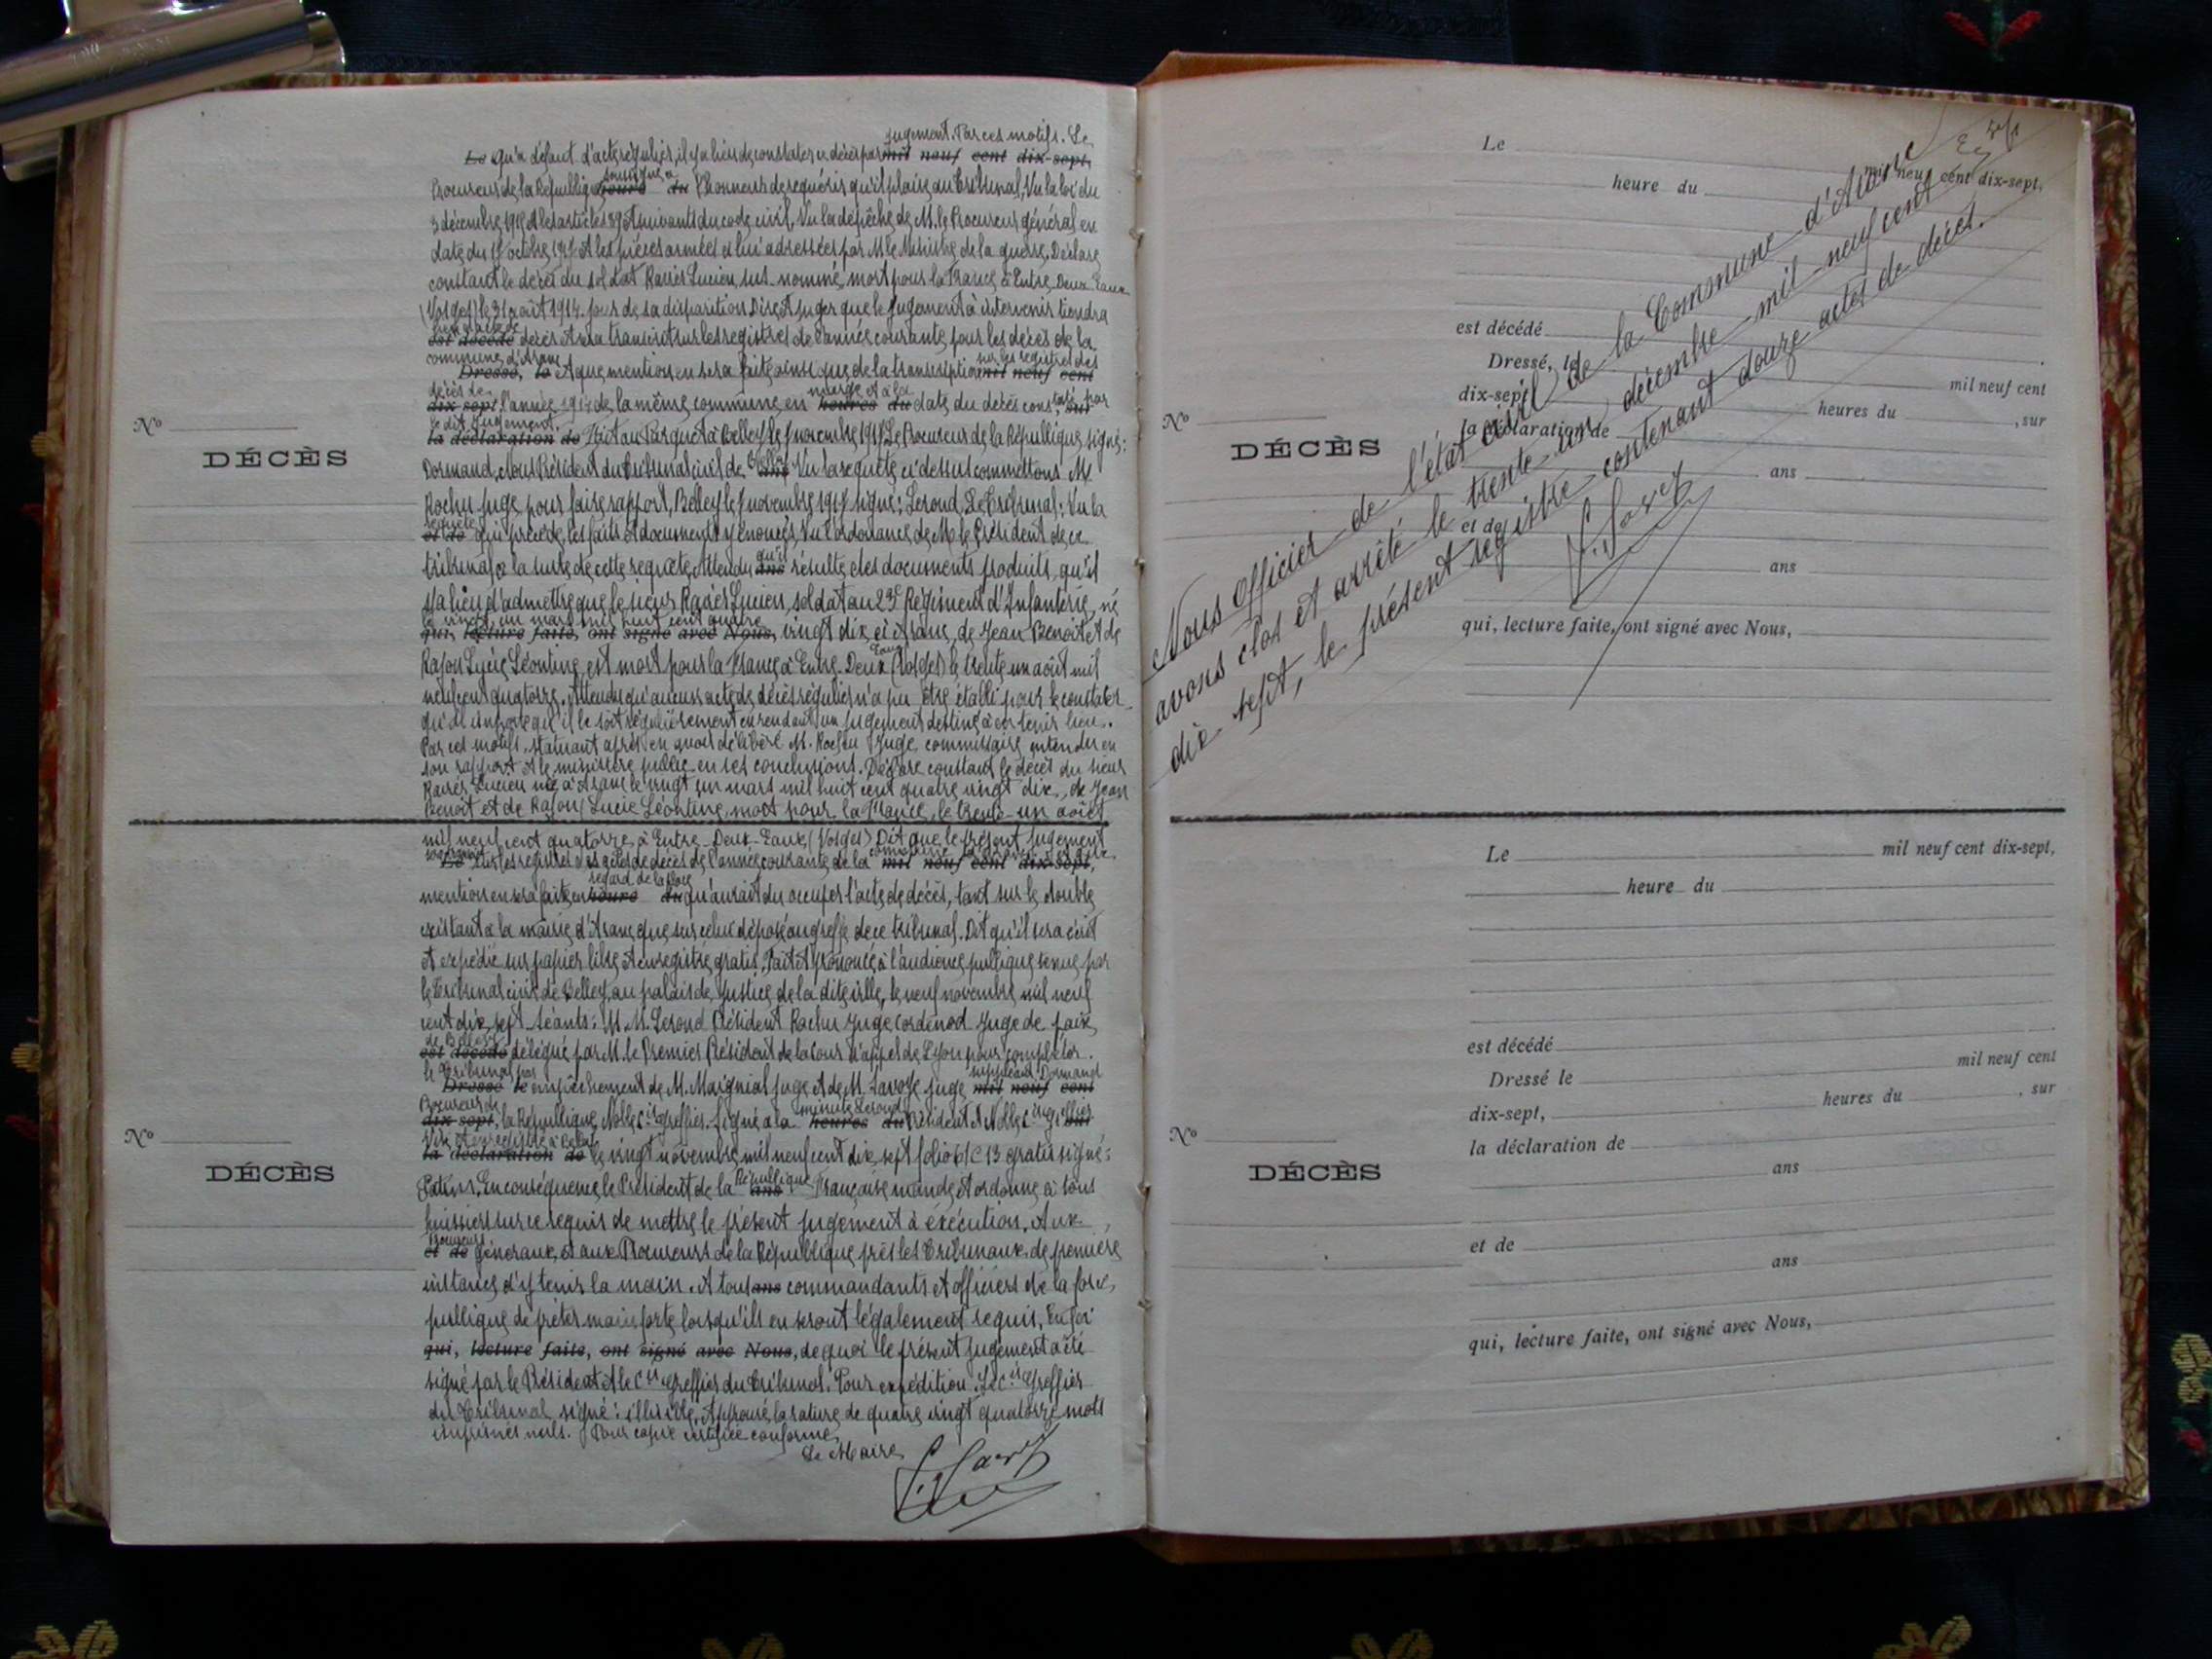 jugement. Par ces motifs. Le
Le qu'à défaut d'acte régulier, il y a lieu de constater ce décès par mil neuf cent dix-sept,
soussigné a
Procureur de la République heure du l'honneur de requérir qu'il plaise au Tribunal, Vu la loi du
3 décembre 1915 et les articles 89 et suivants du code civil, Vu la dépêche de M. le Procureur général en
date du 15 octobre 1917 et les pièces annexées à lui adressées par M le Ministre de la guerre, Déclare
constant le décès du soldat Ravier Lucien, sus-nommé, mort pour la France à Entre-Deux-Eaux
(Vosges) le 31 août 1914. jour de sa disparition Dire et juger que le jugement à intervenir tiendra
est décédé décès et sera transcrit sur les registres de l'année courante pour les décès de la
commune d'Arane sur les registres des
Dressé, le et que mention en sera faite ainsi que de la transcription mil neuf cent
décès de marge et à la
dix-sept l'année 1914 de la même commune en heures du date du décès constaté sur par
le dit jugement.
la déclaration de Fait au Parquet à Belley le 7 novembre 1917 Le Procureur de la République signé:
Dormand, Nous Président du Tribunal civil de Belley ans Vu la requête ci-dessus commettons M
Rochu juge pour faire rapport, Belley le 7 novembre 1917 signé: Leroud, Le Tribunal: Vu la
requête
et de qui précède, les faits et documents y énoncés, Vu l'ordonnance de M. le Président de ce
qu'il
tribunal à la suite de cette requête, Attendu ans résulte des documents produits, qu'il
y a lieu d'admettre que le sieur Ravier Lucien, soldat au 23e Régiment d'Infanterie, né
le vingt un mars mil huit cent quatre
qui, lecture faite, ont signé avec Nous, vingt dix à Arane, de Jean Benoit et de
Eaux
Rajon Lucie Léontine, est mort pour la France à Entre-Deux (Vosges) le trente un août mil
neuf cent quatorze, Attendu qu'aucun acte de décès régulier n'a pu être établi pour le constater
qu'il importe qu'il le soit régulièrement en rendant un jugement destiné à en tenir lieu.
Par ces motifs, statuant après en avoir délibéré M. Rochu Juge, commissaire entendu en
son rapport et le ministère public en ses conclusions. Déclare constant le décès du sieur
Ravier Lucien né à Arane le vingt un mars mil huit cent quatre vingt dix, de Jean
Benoit et de Rajon Lucie Léontine, mort pour la France, le trente-un août
N° DÉCÈS
mil neuf cent quatorze, à Entre-Deux-Eaux (Vosges) Dit que le présent jugement
Le sur les registres des actes de décès de l'année courante de la commune mil neuf cent dix-sept,
regard de la place
mention en sera faite en heure du qu'aurait du occuper l'acte de décès, tant sur le double
existant à la mairie d'Arane que sur celui déposé au greffe de ce tribunal. Dit qu'il sera écrit
et expédié sur papier libre et enregistré gratis, Fait et prononcé à l'audience publique tenue par
le Tribunal civil de Belley, au palais de Justice de la dite ville, le neuf novembre mil neuf
cent dix sept. Séants: M. M. Leroud Président Rochu Juge Cordenod Juge de paix
de Belley
est décédé délégué par M. le Premier Président de la Cour d'appel de Lyon pour compléter.
le Tribunal par suppléant Dormand
Dressé le empêchement de M. Maignial juge et de M. Lavoye juge mil neuf cent
Procureur de minute Leroud
dix-sept, la République, Nolles cis greffier. Signé à la heures du Président et Nolles cis greffier sur
Visé et enregistré à Belley
la déclaration de le vingt novembre mil neuf cent dix sept folio 61 C 13 gratis signé:
En conséquence le Président de la République ans Française mande et ordonne à tous
huissiers sur ce requis de mettre le présent jugement à exécution, Aux
Procureurs
et de Généraux, et aux Procureurs de la République près les Tribunaux de première
instance d'y tenir la main. A tous ans commandants et officiers de la force
publique de prêter main forte lorsqu'ils en seront légalement requis, En foi
qui, lecture faite, ont signé avec Nous, de quoi le présent jugement a été
signé par le Président et le Cis greffier du Tribunal. Pour expédition, Le Cis greffier
du Tribunal signé: illisible, Approuvé la rature de quatre vingt quatorze mots
imprimés nuls. Pour copie certifiée conforme,
Le Maire
N° DÉCÈS
Le mil neuf cent dix-sept,
heure du
est décédé
Dressé, le mil neuf cent
dix-sept, heures du , sur
la déclaration de
ans
N° DÉCÈS
et de
ans
qui, lecture faite, ont signé avec Nous,
Nous officier de l'état civil de la Commune d'Arane
avons clos et arrêté le trente-un décembre mil-neuf cent
dix sept, le présent registre contenant douze actes de décès.
Le mil neuf cent dix-sept,
heure du
est décédé
Dressé le mil neuf cent
dix-sept, heures du , sur
la déclaration de
ans
N° DÉCÈS
et de
ans
qui, lecture faite, ont signé avec Nous,